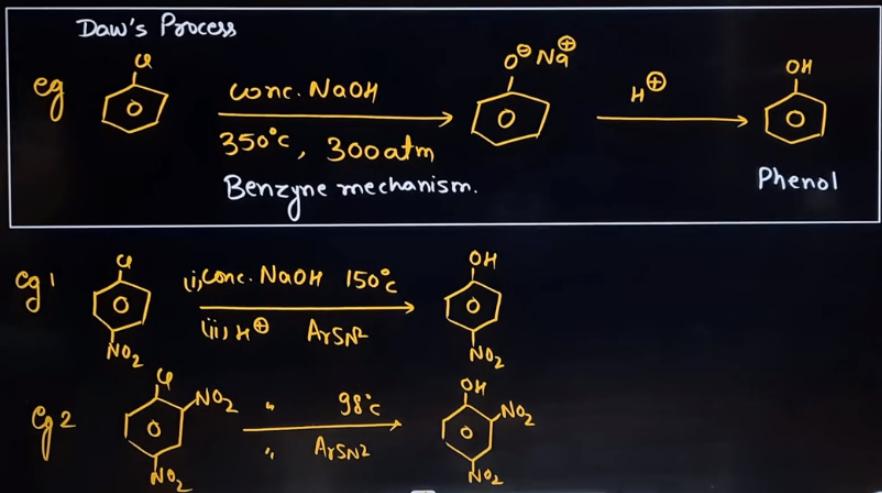 Daw's Process
eg
Cl
conc. NaOH
350°c, 300atm
Benzyne mechanism.
O⊖ Na⊕
H⊕
OH
Phenol
eg 1
Cl
NO2
(i) Conc. NaOH 150°c
(ii) H⊕ ArSN2
OH
NO2
Eg 2
Cl
NO2
NO2
" 98°c
" ArSN2
OH
NO2
NO2